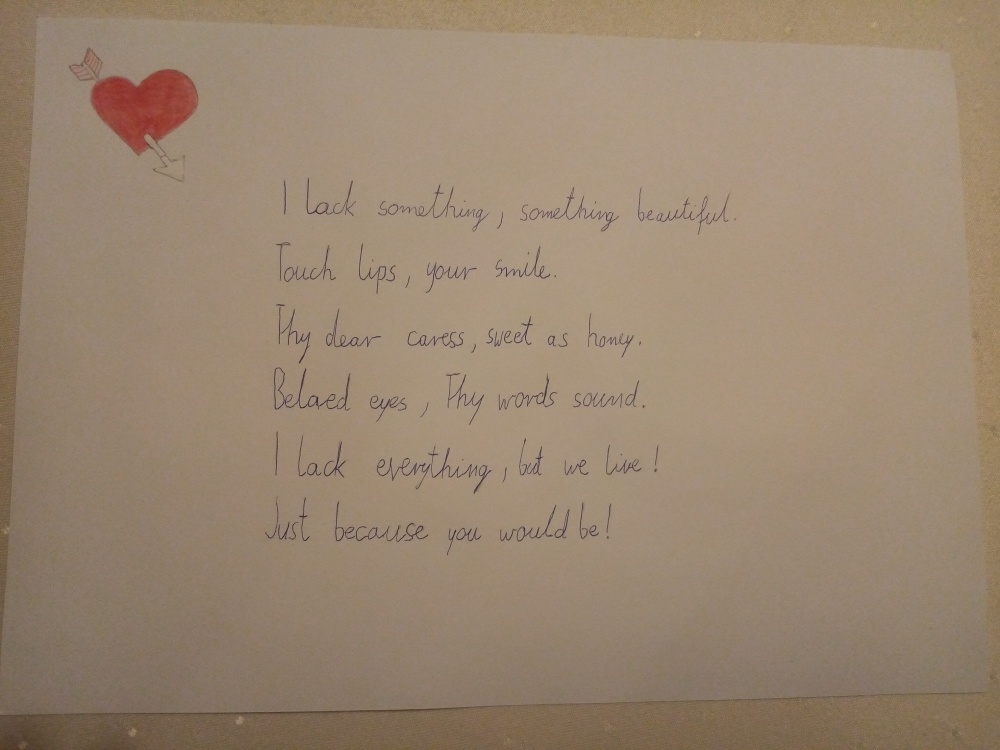 I lack something, something beautiful.
Touch lips, your smile.
Thy dear caress, sweet as honey.
Beloved eyes, Thy words sound.
I lack everything, but we live!
Just because you would be!